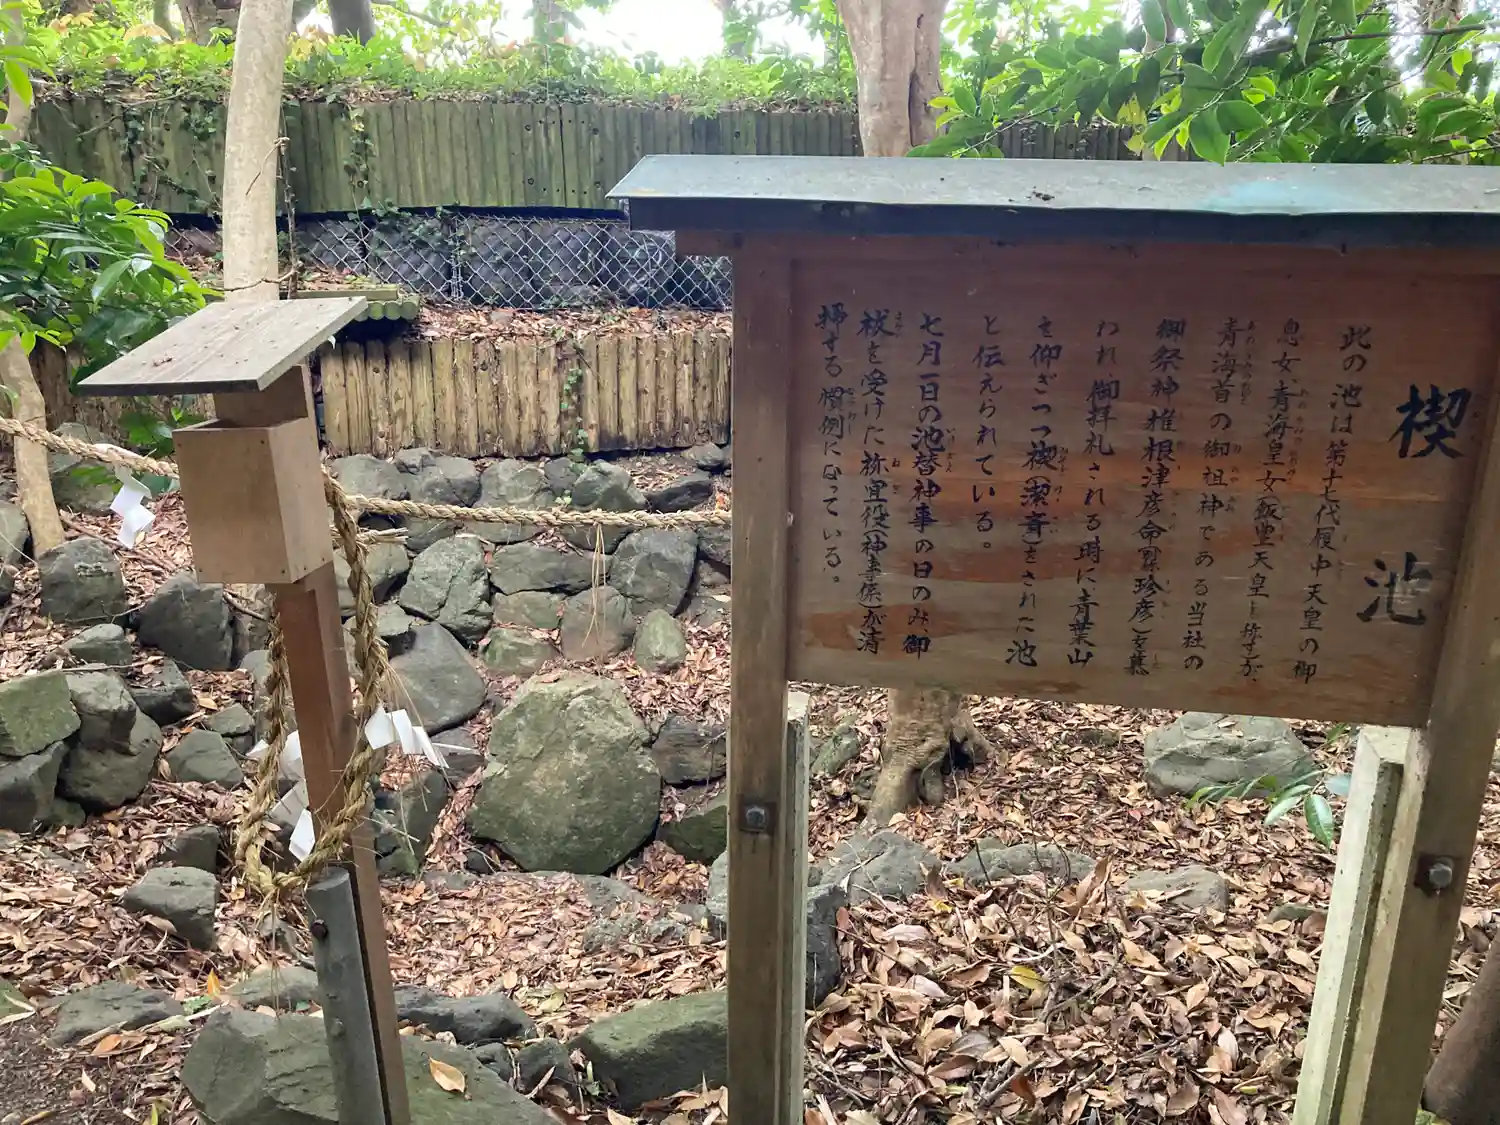 禊池
此の池は第十七代履中天皇の御
息女、青海皇女(飯豊天皇)と称すが、
青海首の御祖神である当社の
御祭神椎根津彦命(珍彦)を慕
われ、御拝礼される時に、青葉山
を仰ぎつつ禊(潔斉)をされた池
と伝えられている。
七月一日の池替神事の日のみ御
祓を受けた祢宜役(神事係)が清
掃する慣例になっている。